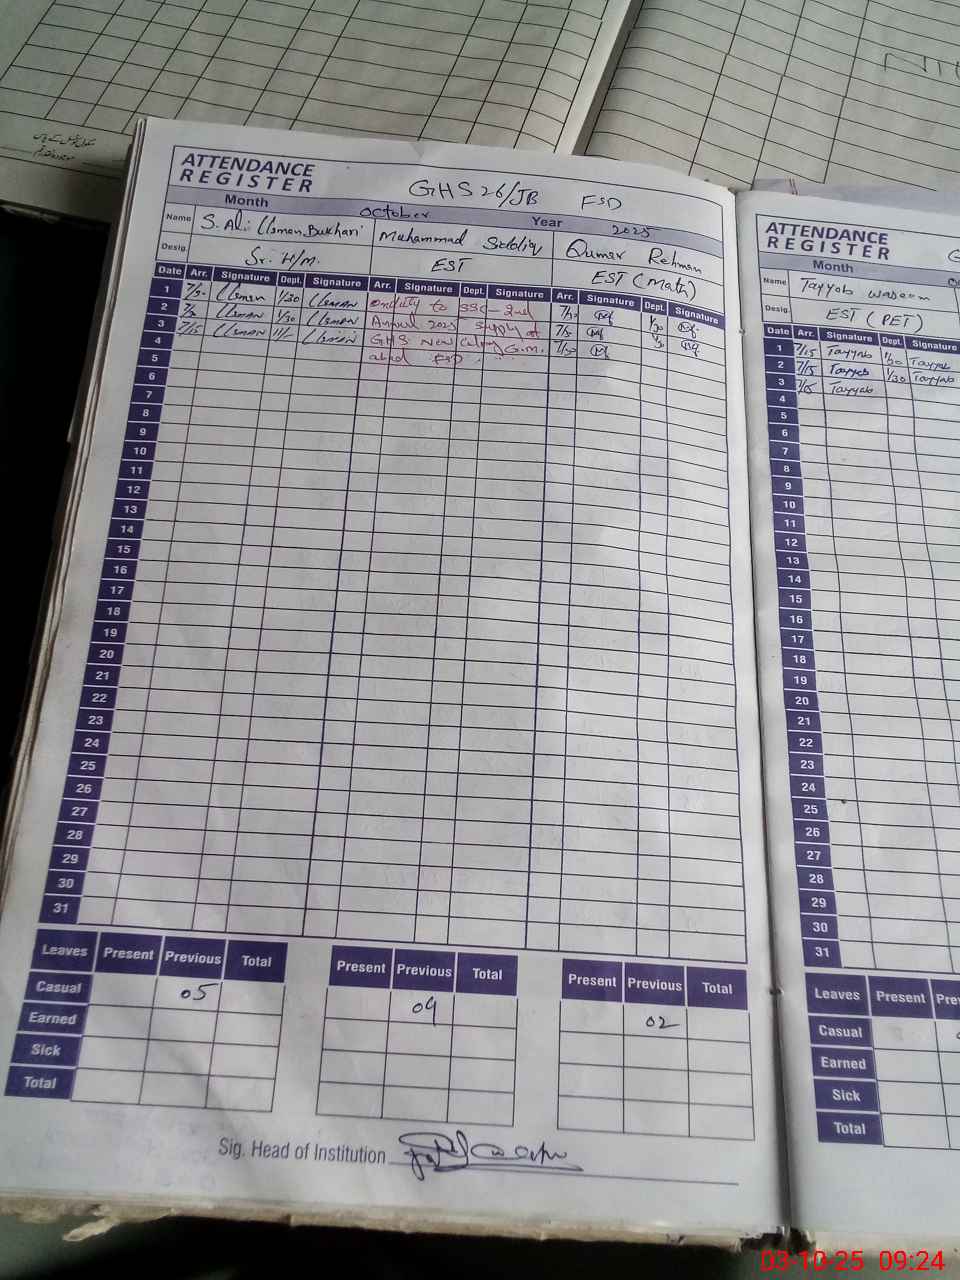 ATTENDANCE
REGISTER
GHS 26/JB FSD
Month October Year 2025
Name S. Ali Usman Bukhari Muhammad Siddiq Qumar Rehman
Desig. Sr. H/M. EST EST (Math)
Date Arr. Signature Dept. Signature Arr. Signature Dept. Signature Arr. Signature Dept. Signature
1 Usman 1/30 Usman Onduty to SSC-2nd
2 Usman 1/30 Usman Annual 2025 supply at
3 7/15 Usman Usman GHS New G.M.
4 abad FSD
5
6
7
8
9
10
11
12
13
14
15
16
17
18
19
20
21
22
23
24
25
26
27
28
29
30
31
Leaves Present Previous Total Present Previous Total Present Previous Total
Casual 05 09 02
Earned
Sick
Total
Sig. Head of Institution
ATTENDANCE
REGISTER
Month
Name Tayyab Waseem
Desig. EST (PET)
Date Arr. Signature Dept. Signature
1 7/15 Tayyab 1/30 Tayyab
2 7/15 Tayyab 1/30 Tayyab
3 7/15 Tayyab
4
5
6
7
8
9
10
11
12
13
14
15
16
17
18
19
20
21
22
23
24
25
26
27
28
29
30
31
Leaves Present
Casual
Earned
Sick
Total
03-10-25 09:24